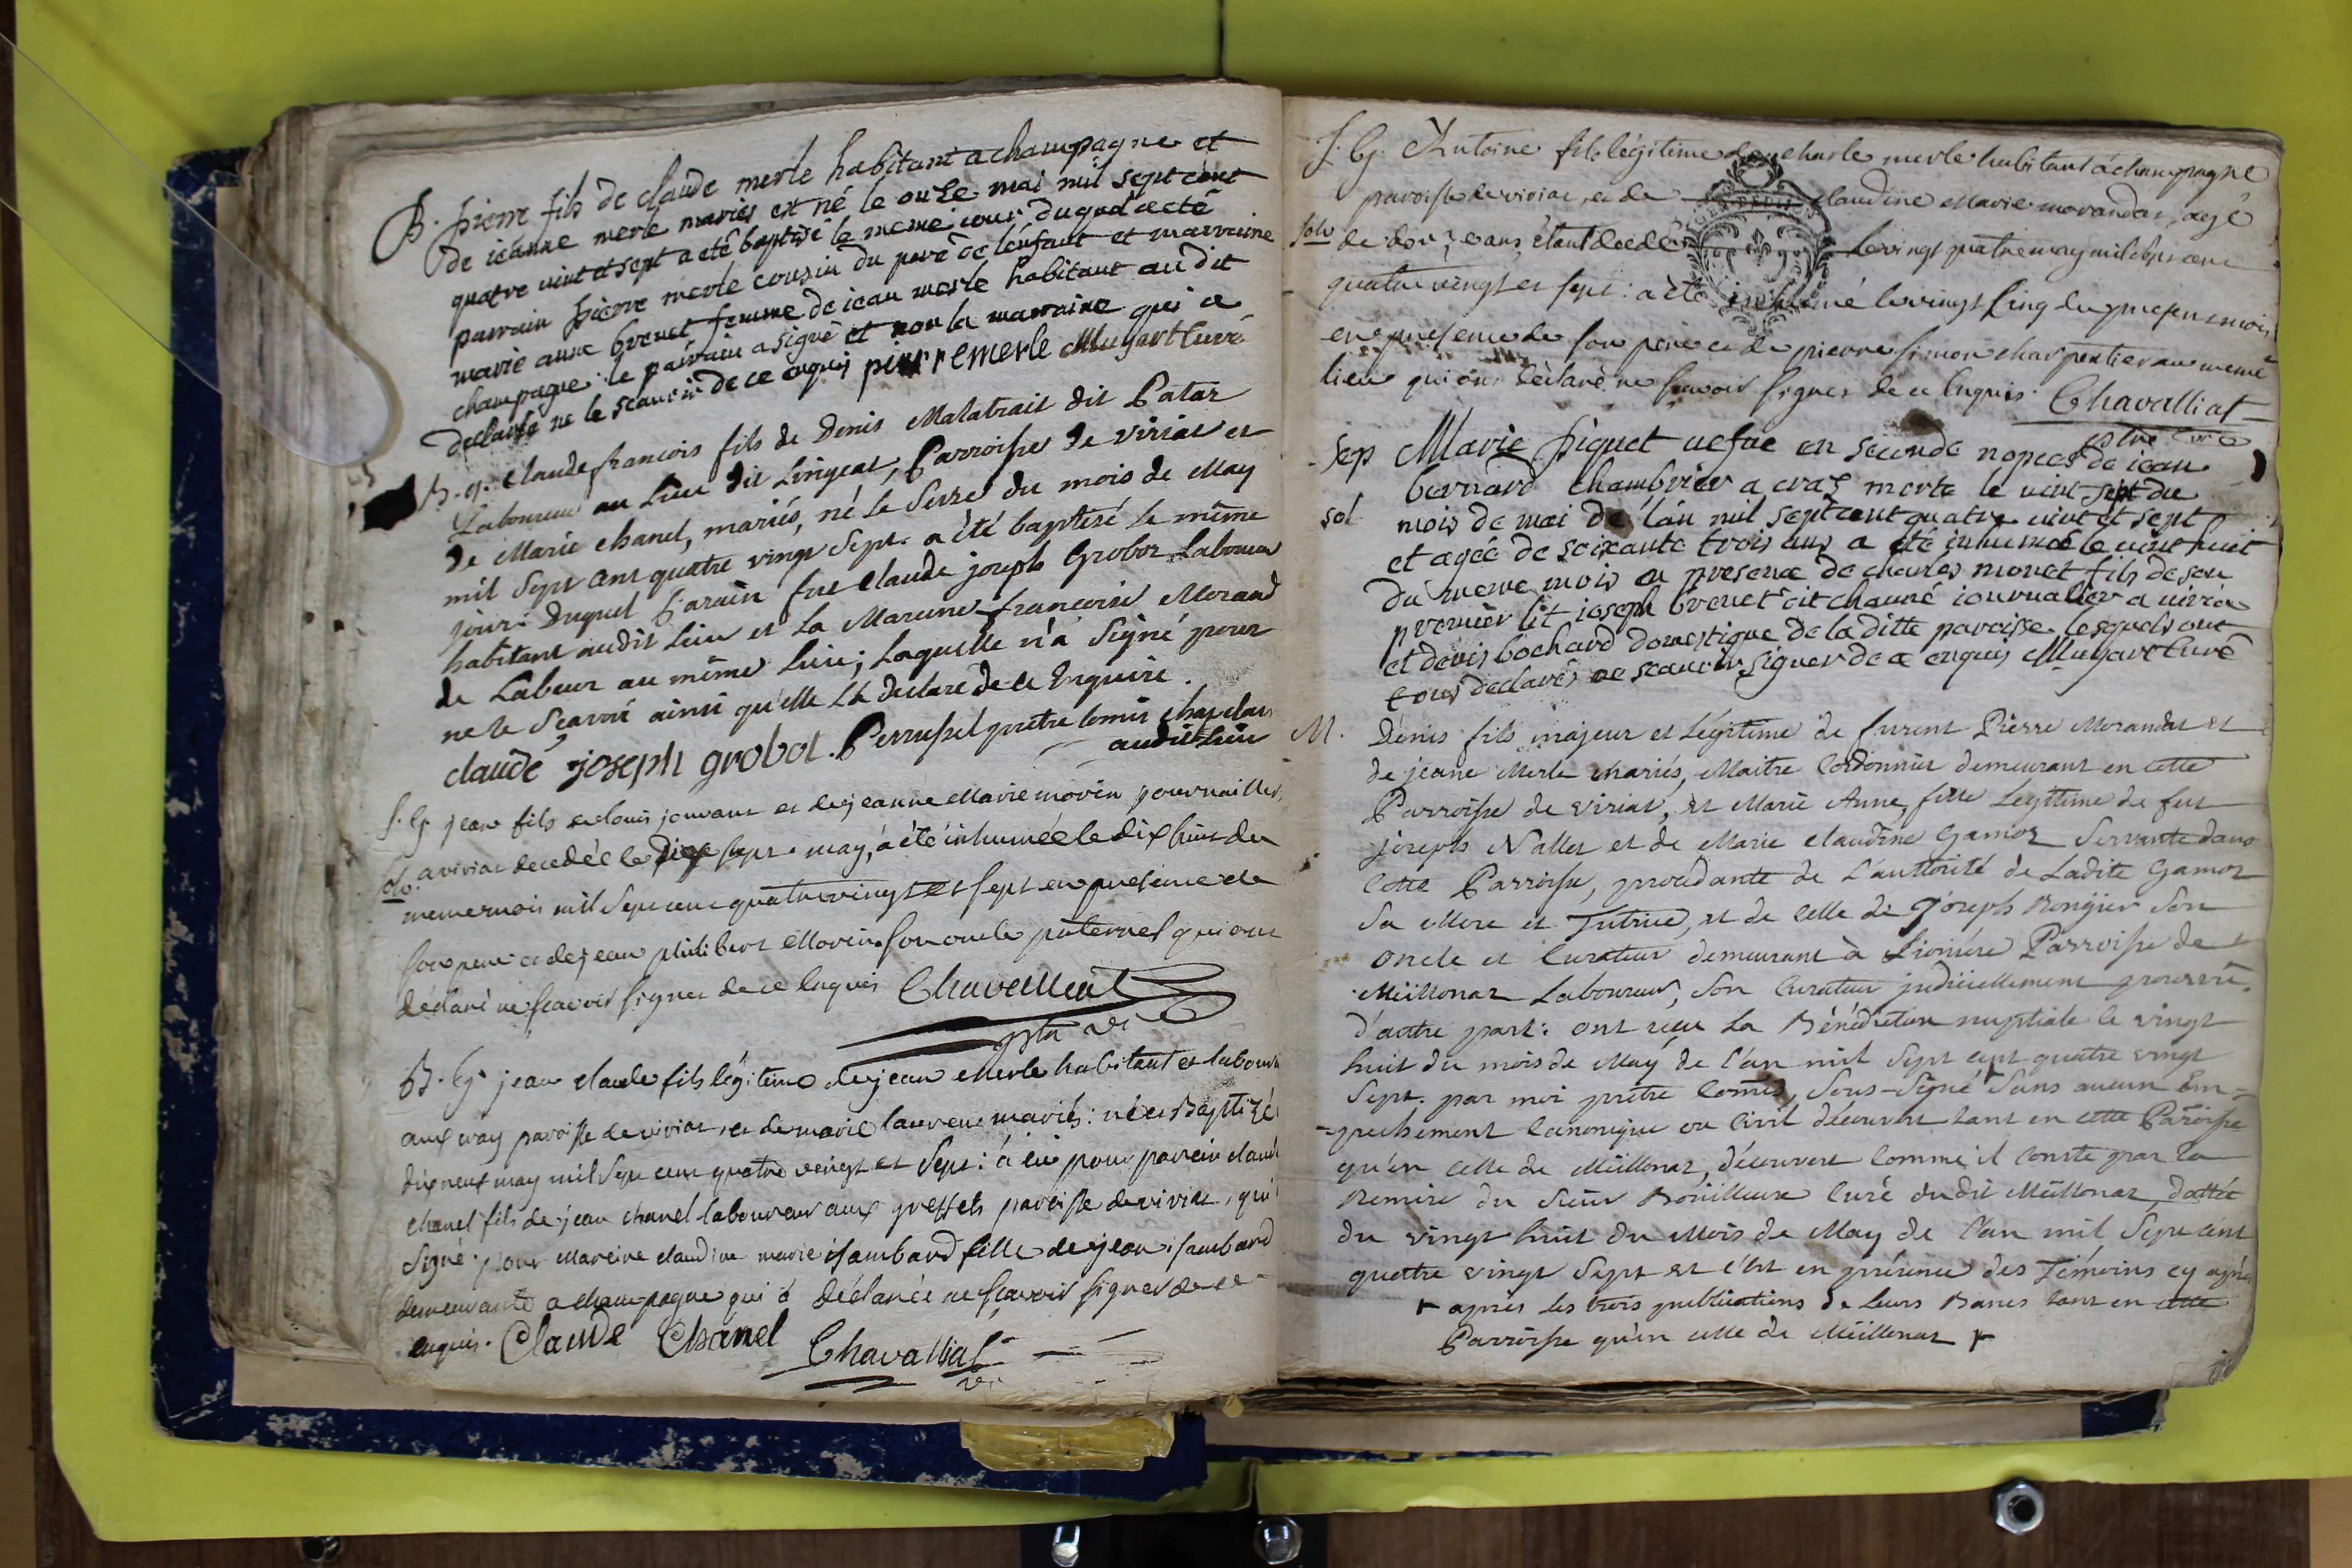 B. pierre fils de claude merle habitant a champagne et
de jeanne merle mariés est né le onze mai mil sept cent
quatre vint et sept a eté baptisé le meme jour duquel a eté
parrain pierre merle cousin du pere de l'enfant et marraine
marie anne brevet femme de jean merle habitant au dit
champagne. le parrain a signé et non la marraine qui a
declaré ne le scavoir de ce enquis pierre merle Mugart Curé
B. g. Claude francois fils de Denis Malatrait dit Patar
Laboureur au Lieu dit Lingeat, Parroisse de viriat et
de Marie chanel, mariés, né le Seize du mois de May
mil Sept cent quatre vingt Sept. a été baptisé le même
jour: Duquel Parain fut Claude joseph Grobot Laboureur
habitant audit Lieu et La Maraine francoise Morand
de Labeur au même Lieu; Laquelle n'a Signé pour
ne le Scavoir ainsi qu'elle l'a declaré de ce Enquise.
claude joseph grobot. Perrussel prêtre Comis
audit Lieu
S. G. jean fils de louis jouvant et de jeanne Marie morin journaillier
a viriat decedé le dix sept may, a été inhumée le dix huit du
meme mois mil Sept cent quatre vingt et sept en presence de
son pere et de jean philibert Morin son oncle paternel qui ont
déclaré ne scavoir signer de ce Enquis Chavalliat
ptre vic
B. G. jean claude fils légitime de jean Merle habitant et laboureur
aux way paroisse de viriat, et de marie laurent mariés: né et Baptizé
dix neuf may mil Sept cent quatre vingt et Sept: a eu pour parein claude
chanel fils de jean chanel laboureur aux greffets paroisse de viriat, qui a
Signé. pour Mareine claudine marie isambard fille de jean isambard
demeurante a champagne qui a déclarée ne scavoir signer de ce
enquis. Claude Chanel Chavalliat
vic
S. G. Antoine fils légitime de charle merle habitant a champagne
paroisse de viriat, et de claudine Marie morandat, agé
solv de douze ans, étant decedé le vingt quatre may mil sept cent
quatre vingt et sept: a été inhumé le vingt cinq du present mois
en presence de son pere et de pierre simon charpentier au meme
lieu qui ont déclaré ne scavoir signer de ce Enquis. Chavalliat
ptre vic
Sep Marie piquet vefue en seconde nopces de jean
bernard chambrier a craz morte le vint sept du
sol mois de mai de l'an mil sept cent quatre vint et sept
et agée de soixante trois ans a été inhumée le vint huit
du meme mois en presence de charles monet fils de son
premier lit joseph brevet dit channé journalier a viria
et denis bochard domestique de la ditte paroisse lesquels ont
tous declarés ne scavoir signer de ce enquis Mugart Curé
M. Dénis fils majeur et Légitime de furent Pierre Morandat et
de jeane Merle mariés, Maitre Cordonnier demeurant en cette
Parroisse de viriat, et Marie Anne, fille Legitime de fut
joseph Nallet et de Marie claudine Gamoz Servante dans
cette Parroisse, procédante de L'authorité de Ladite Gamoz
Sa Mere et Tutrice, et de celle de joseph Rongier Son
oncle et Curateur demeurant à Lioniere Parroisse de
Meillonaz Laboureur, Son Curateur judiciellement pourvu
d'autre part: ont reçu La Bénédiction nuptiale le vingt
huit du mois de May de l'an mil Sept cent quatre vingt
Sept. par moi prêtre Comis, Sous-Signé + Sans aucun Em=
=pechement Canonique ou Civil découvert tant en cette Paroisse
qu'en celle de Meillonaz, découvert comme il conste par la
Remise du Sieur Bouilleux Curé dudit Meillonaz, dattée
du vingt huit du Mois de May de l'an mil Sept cent
quattre vingt Sept et c'est en présence des Témoins cy après
+ après les trois publications de Leurs Bancs tant en cette
Parroisse qu'en celle de Meillonaz +